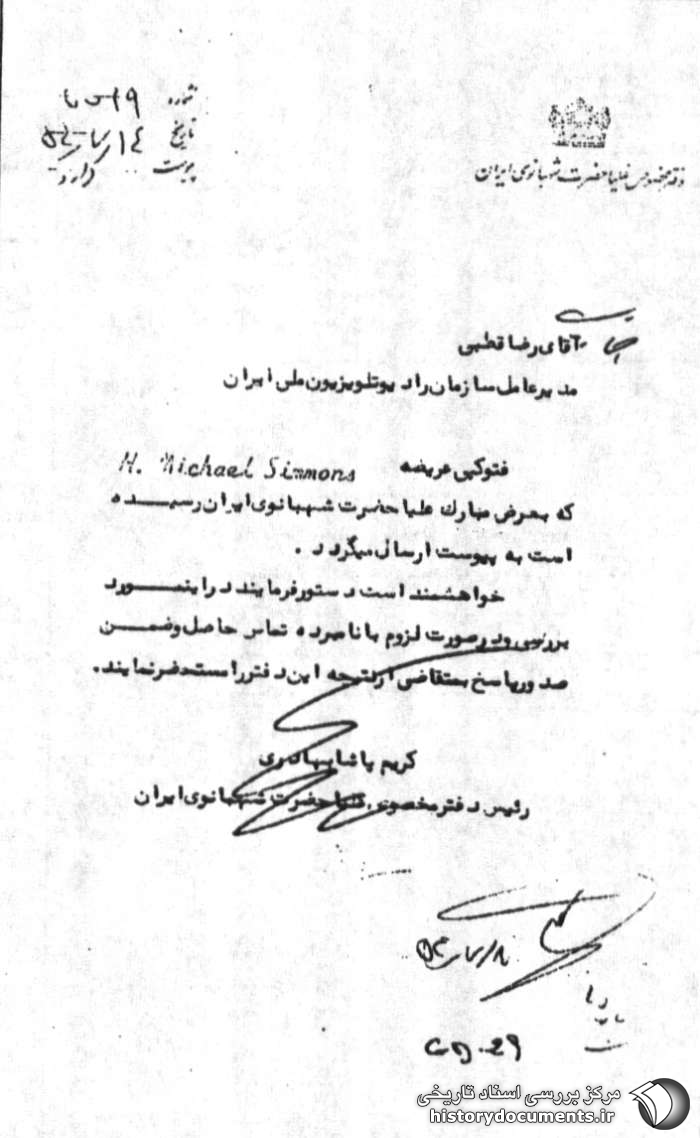 دفتر مخصوص علیا حضرت شهبانوی ایران
شماره
تاریخ
پیوست دارد
جناب آقای رضا قطبی
مدیرعامل سازمان رادیو تلویزیون ملی ایران
فتوکپی عریضه H. Michael Simmons
که بعرض مبارک علیا حضرت شهبانوی ایران رسیده
است به پیوست ارسال میگردد.
خواهشمند است دستور فرمایند در اینمورد
بررسی و در صورت لزوم با نامبرده تماس حاصل و ضمن
صدور پاسخ بمتقاضی از نتیجه این دفتر را مستحضر نمایند.
کریم پاشا بهادری
رئیس دفتر مخصوص علیا حضرت شهبانوی ایران
مرکز بررسی اسناد تاریخی
historydocuments.ir